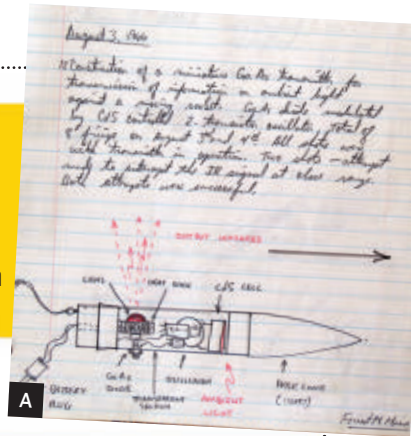 August 3, 1966
Construction of a miniature GaAs transmitter for
transmission of information on ambient light
against a moving rocket. GaAs diode modulated
by CdS controlled 2-transistor oscillator. Total of
firings on August 3 and 4th. All shots were
with transmitter in operation. Two shots - attempt
made to intercept the IR signal at close range.
Both attempts were successful.
OUTPUT INFRARED
LENS
CdS CELL
GaAs
DIODE
OSCILLATOR
NOSE CONE
BATTERY
PLUG
TRANSPARENT
SECTION
AMBIENT
LIGHT
Forrest M. Mims
A